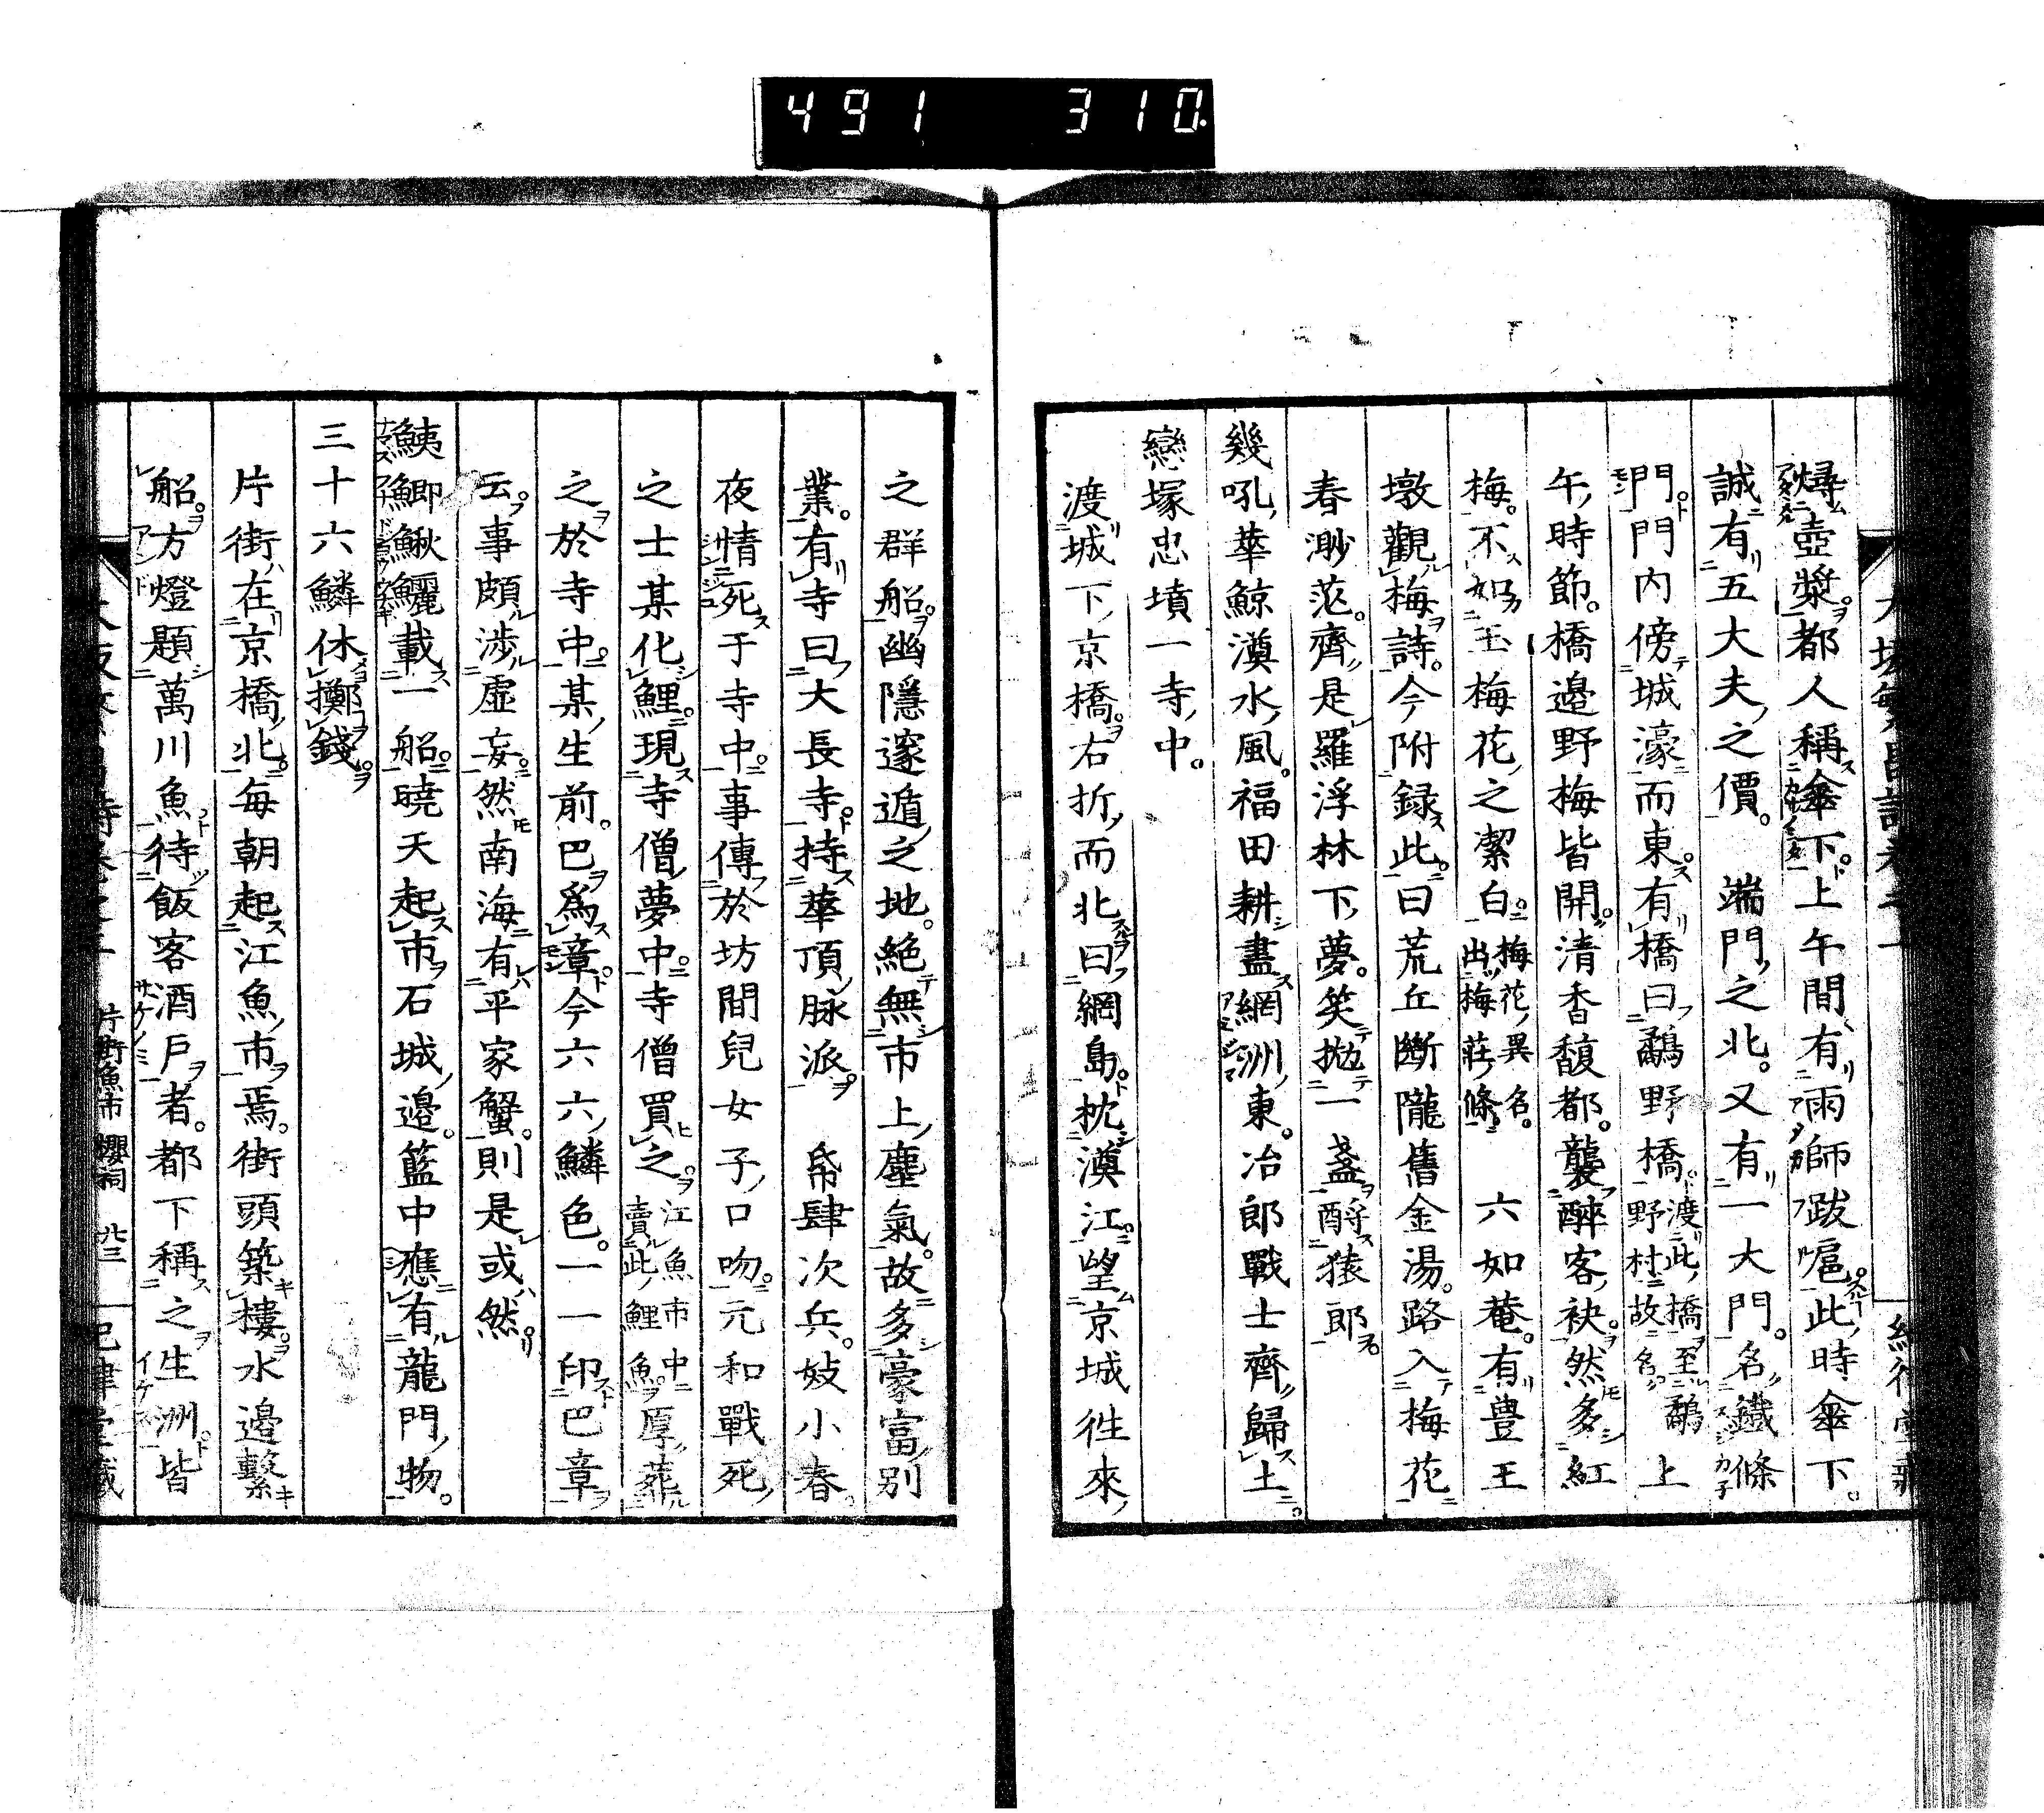 491 310
燖壺漿都人稱傘下上午間有雨師跋扈此時傘下
誠有五大夫之價 端門之北又有一大門名鐵條
門門内傍城濠而東有橋曰鷸野橋渡此橋至鷸野村故名上
午時節橋邊野梅皆開清香馥都襲醉客袂然多紅
梅不如玉梅花之潔白梅花異名出梅莊條 六如菴有豊王
墩觀梅詩今附録此曰荒丘斷隴舊金湯路入梅花
春渺茫齊是羅浮林下夢笑拋一盞酹猿郎
幾吼華鯨漢水風福田耕盡網洲東冶郎戰士齊歸土
戀塚忠墳一寺中
渡城下京橋右折而北曰網島枕漢江望京城往來
之群船幽隱邃遁之地絶無市上塵氣故多豪富別
業有寺曰大長寺持華頂脉派 帋肆次兵妓小春
夜情死于寺中事傳於坊間兒女子口吻元和戰死
之士某化鯉現寺僧夢中寺僧買之江魚市中賣此鯉魚厚葬
之於寺中某生前巴爲章今六六鱗色一一印巴章
云事頗渉虛妄然南海有平家蟹則是或然
鮧鯽鰍鱺載一船曉天起市石城邉籃中應有龍門物
三十六鱗休擲錢
片街在京橋北毎朝起江魚市焉街頭築樓水邉繫
船方燈題萬川魚待飯客酒戸者都下稱之生洲皆
片街魚市 櫻祠 廿三